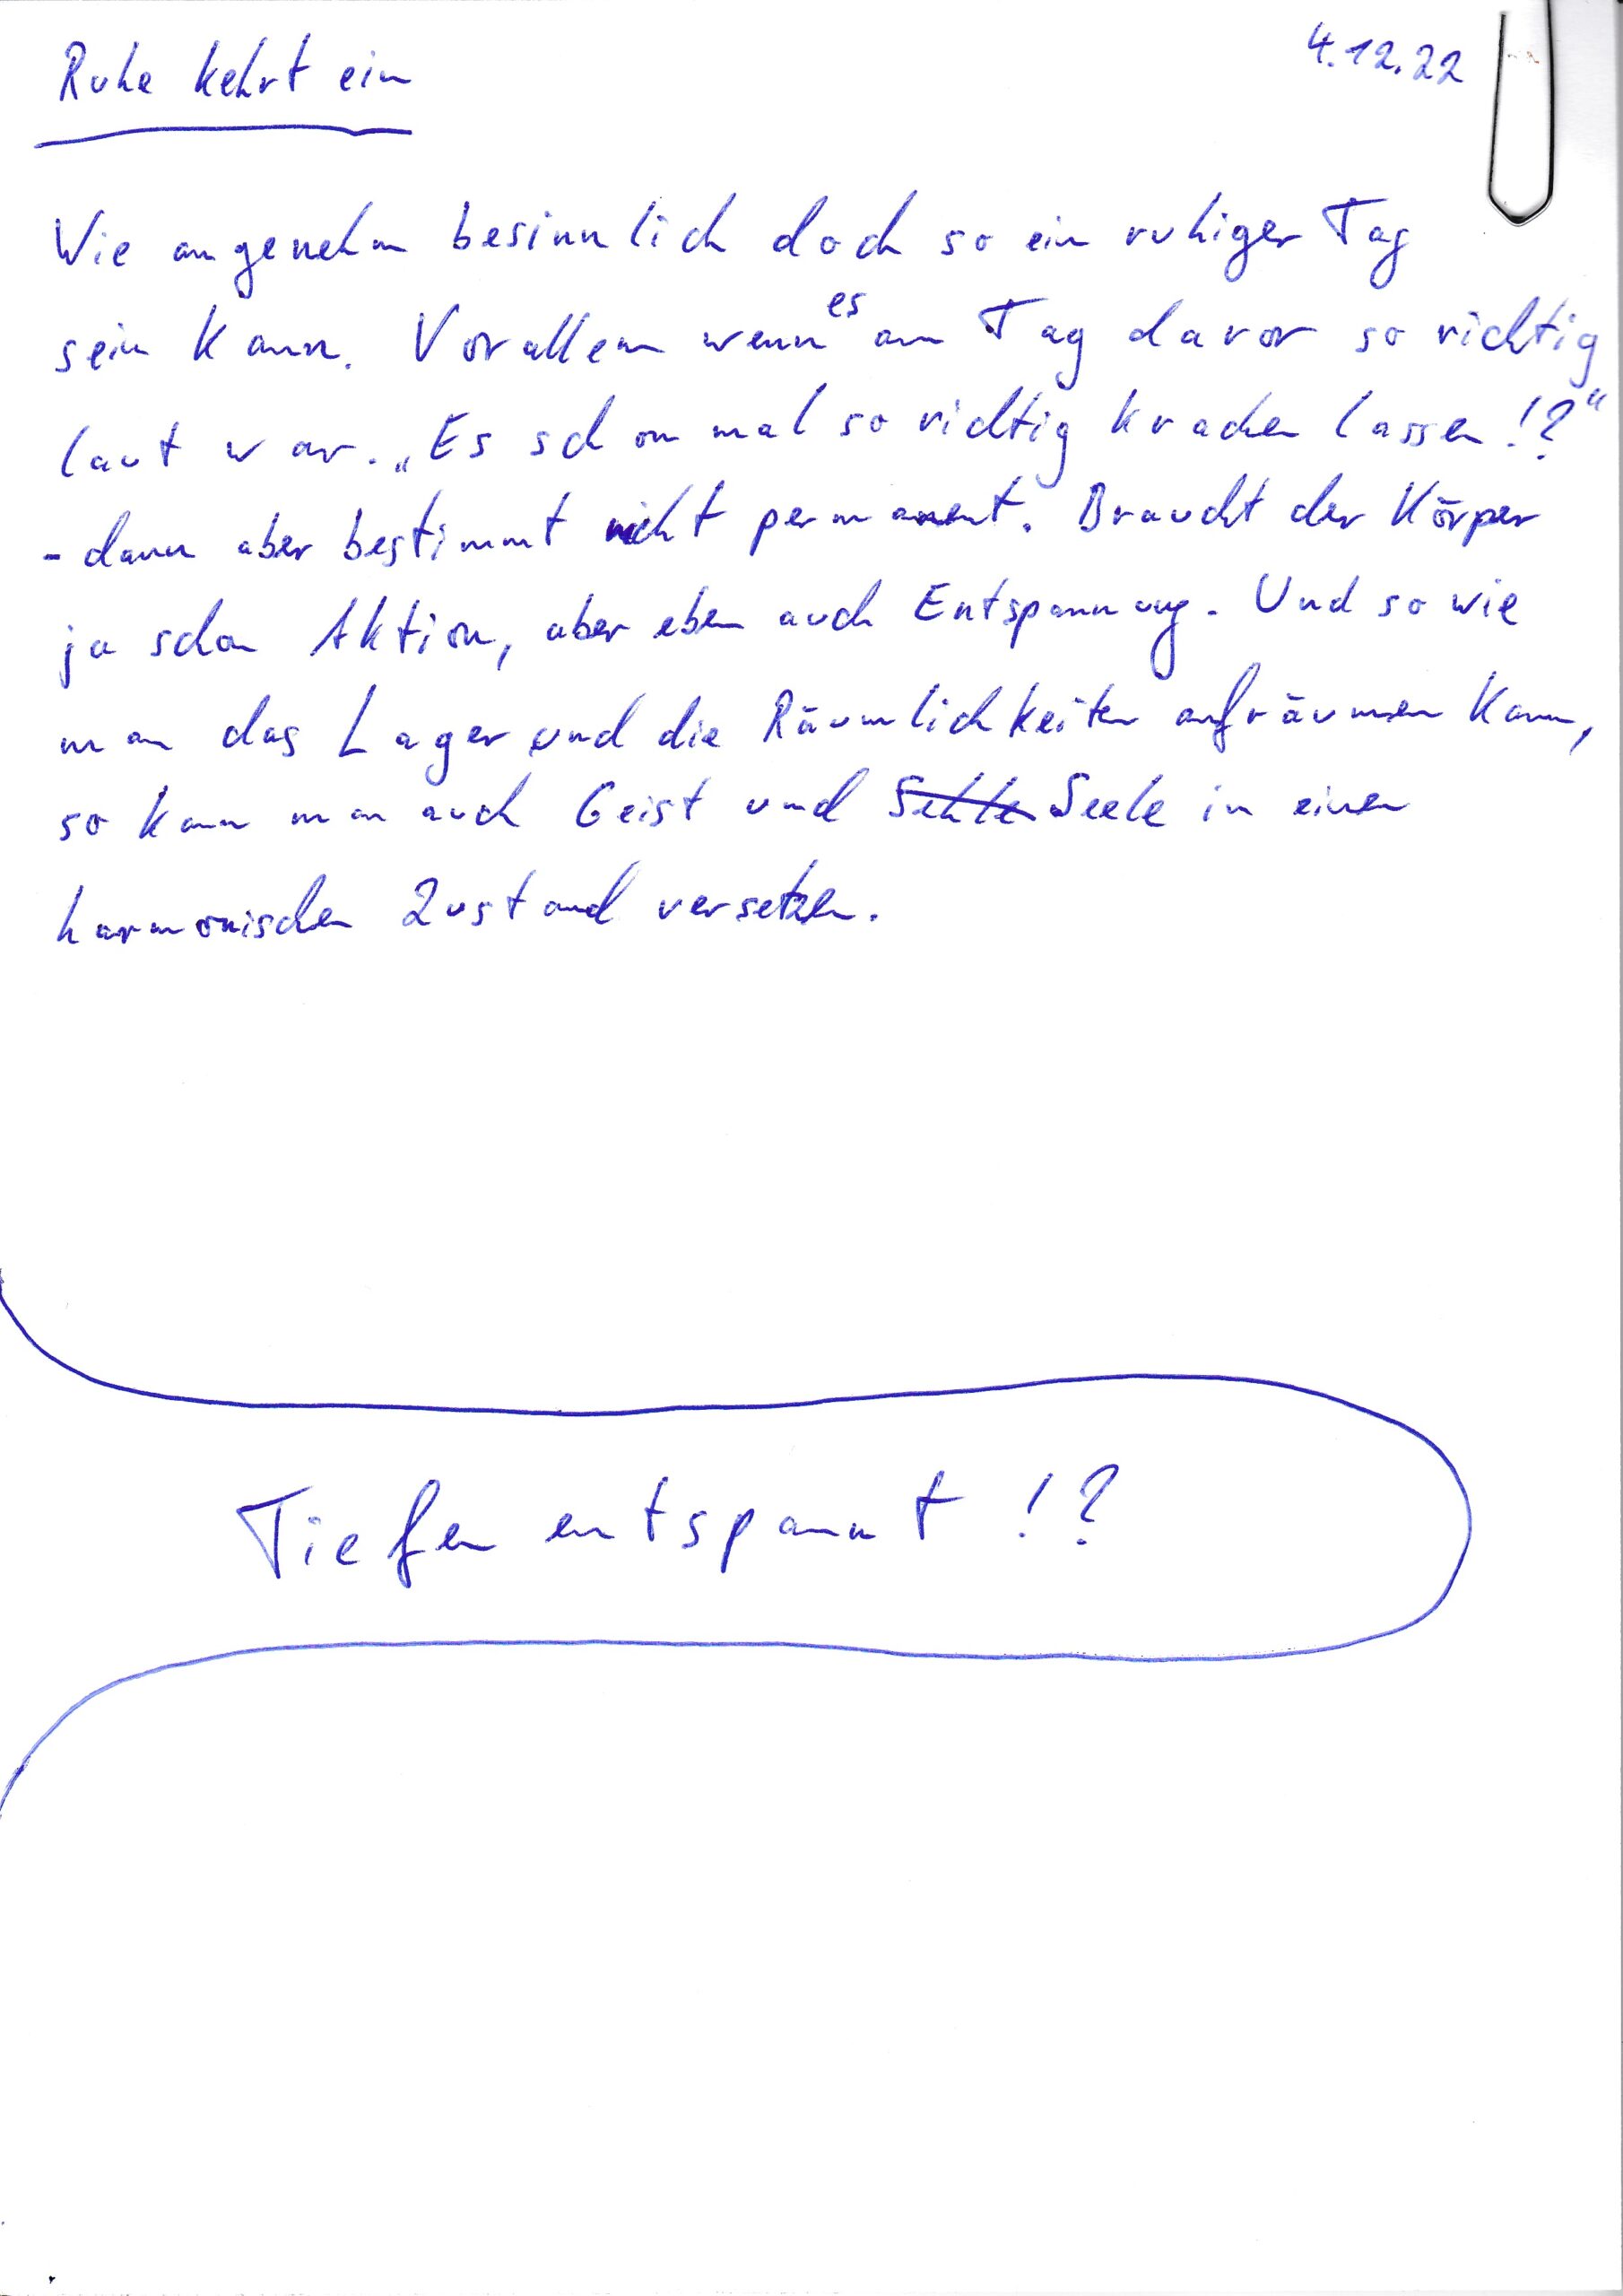 Ruhe kehrt ein
4.12.22
Wie angenehm besinnlich doch so ein ruhiger Tag
sein kann. Vorallem wenn es am Tag davor so richtig
laut war. „Es schon mal so richtig krachen lassen!?“
- dann aber bestimmt nicht permanent. Braucht der Körper
ja schon Aktion, aber eben auch Entspannung. Und so wie
man das Lager und die Räumlichkeiten aufräumen kann,
so kann man auch Geist und Seele in einen
harmonischen Zustand versetzen.
Tiefen entspannt !?